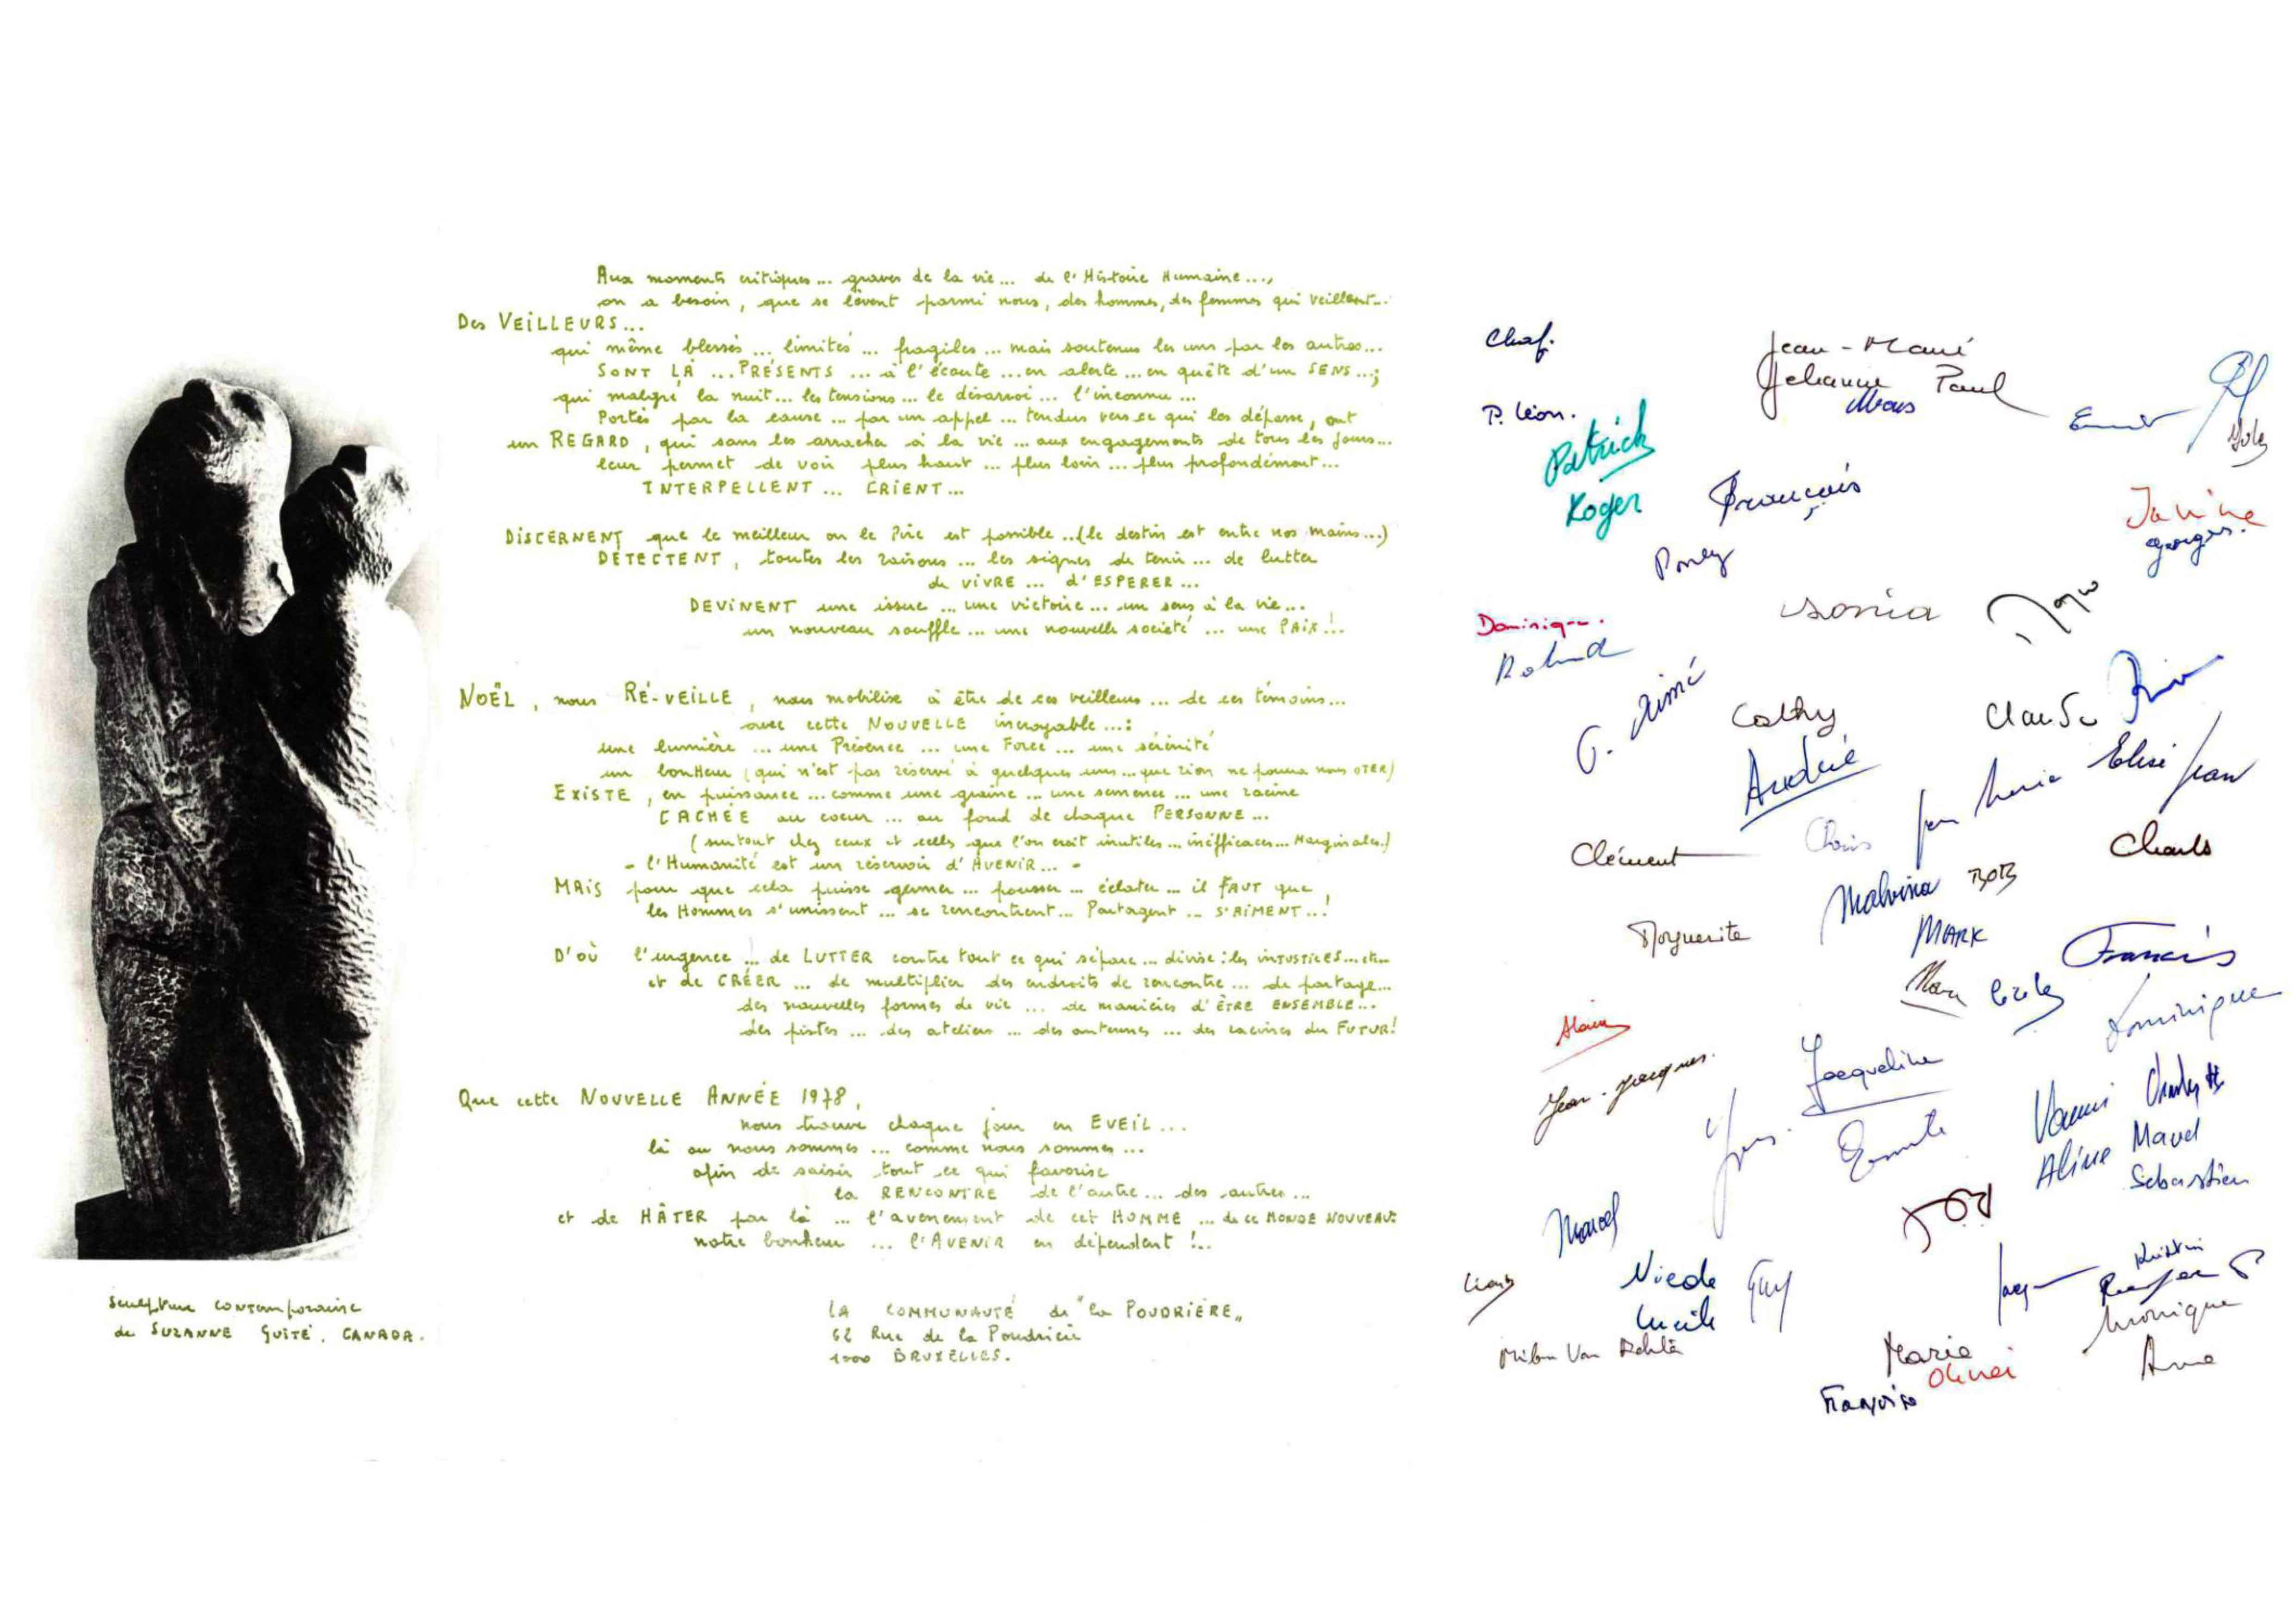 Aux moments critiques... graves de la vie... de l'Histoire Humaine...,
on a besoin, que se lèvent parmi nous, des hommes, des femmes qui veillent...
Des VEILLEURS...
qui même blessés ... limités ... fragiles ... mais soutenus les uns par les autres...
SONT LÀ ... PRÉSENTS ... à l'écoute ... en alerte ... en quête d'un SENS ...;
qui malgré la nuit... les tensions ... le désarroi ... l'inconnu ...
Portés par la cause ... par un appel ... tendus vers ce qui les dépasse, ont
un REGARD, qui sans les arracher à la vie ... aux engagements de tous les jours...
leur permet de voir plus haut ... plus loin ... plus profondément...
INTERPELLENT ... CRIENT...
DISCERNENT que le meilleur ou le Pire est possible ..(le destin est entre nos mains...)
DÉTECTENT, toutes les raisons ... les signes de tenir ... de lutter
de VIVRE ... d'ESPERER ...
DEVINENT une issue ... une victoire ... un sens à la vie...
un nouveau souffle ... une nouvelle société ... une PAIX !..
NOËL, nous RÉ-VEILLE, nous mobilise à être de ces veilleurs ... de ces témoins...
avec cette NOUVELLE incroyable...:
une lumière ... une Présence ... une Force ... une sérénité
un bonHeur (qui n'est pas réservé à quelques uns ... que rien ne pourra nous OTER)
EXISTE, en puissance ... comme une graine ... une semence ... une racine
CACHÉE au coeur ... au fond de chaque PERSONNE ...
(surtout chez ceux et celles que l'on croit inutiles ... inefficaces... Marginales.)
- l'Humanité est un réservoir d'AVENIR... -
MAIS pour que cela puisse germer ... pousser ... éclater ... il FAUT que,
les Hommes s'unissent ... se rencontrent... Partagent ... S'AIMENT...!
D'où l'urgence ... de LUTTER contre tout ce qui sépare ... divise : les INJUSTICES... etc...
et de CRÉER ... de multiplier des endroits de rencontre ... de partage...
des nouvelles formes de vie ... de manières d'ÊTRE ENSEMBLE...
des pistes ... des ateliers ... des antennes ... des racines du FUTUR!
Que cette NOUVELLE ANNÉE 1978,
nous trouve chaque jour en EVEIL...
là où nous sommes ... comme nous sommes ...
afin de saisir tout ce qui favorise
la RENCONTRE de l'autre ... des autres ...
et de HÂTER par là ... l'avènement de cet HOMME ... de ce MONDE NOUVEAU:
notre bonheur ... l'AVENIR en dépendent !..
LA COMMUNAUTÉ de "la POUDRIÈRE„
62 Rue de la Poudrière
1000 BRUXELLES.
Sculpture contemporaine
de SUZANNE GUITÉ. CANADA.
Jean-Marie
Jehanne Paul
P. Léon.
Patrick
Roger
François
Janine
Georges.
Sonia
Dominique.
Roland
Cathy
Claude
Andrée
Jean Marie Elise Jean
Clément
Charles
Malvina BOB
Marguerite
MARK
Francis
Marc Cécile
Dominique
Alain
Jean-Jacques.
Jacqueline
Yves.
Vanni Charles H
Aline Marcel
Sebastien
Marcel
Nicole Guy
Lucile
Kristin
Monique
Marie
Anne
Olivier
Françoise